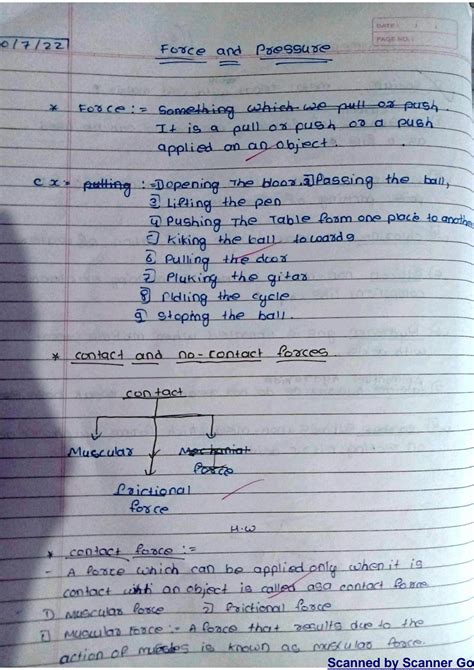 DATE: / /
PAGE NO.:
0/7/22
Force and Pressure
* Force := Something which we pull or push
It is a pull or push or a push
applied on an object.
ex:- pulling :- 1) opening The Door, 2) Passing the ball,
3) Lifting the pen
4) Pushing The Table form one place to another
5) Kiking the ball towards
6) Pulling the door
7) Pluking the gitar
8) Ridling the cycle
9) Stoping the ball.
* contact and no-contact forces
contact
Muscular
force
Frictional
force
H.W
* contact force :=
- A force which can be applied only when it is
contact with an object is called as a contact force
1) Muscular force 2) Frictional force
1) Muscular Force :- A force that results due to the
action of muscles is known as muskular force.
Scanned by Scanner Go